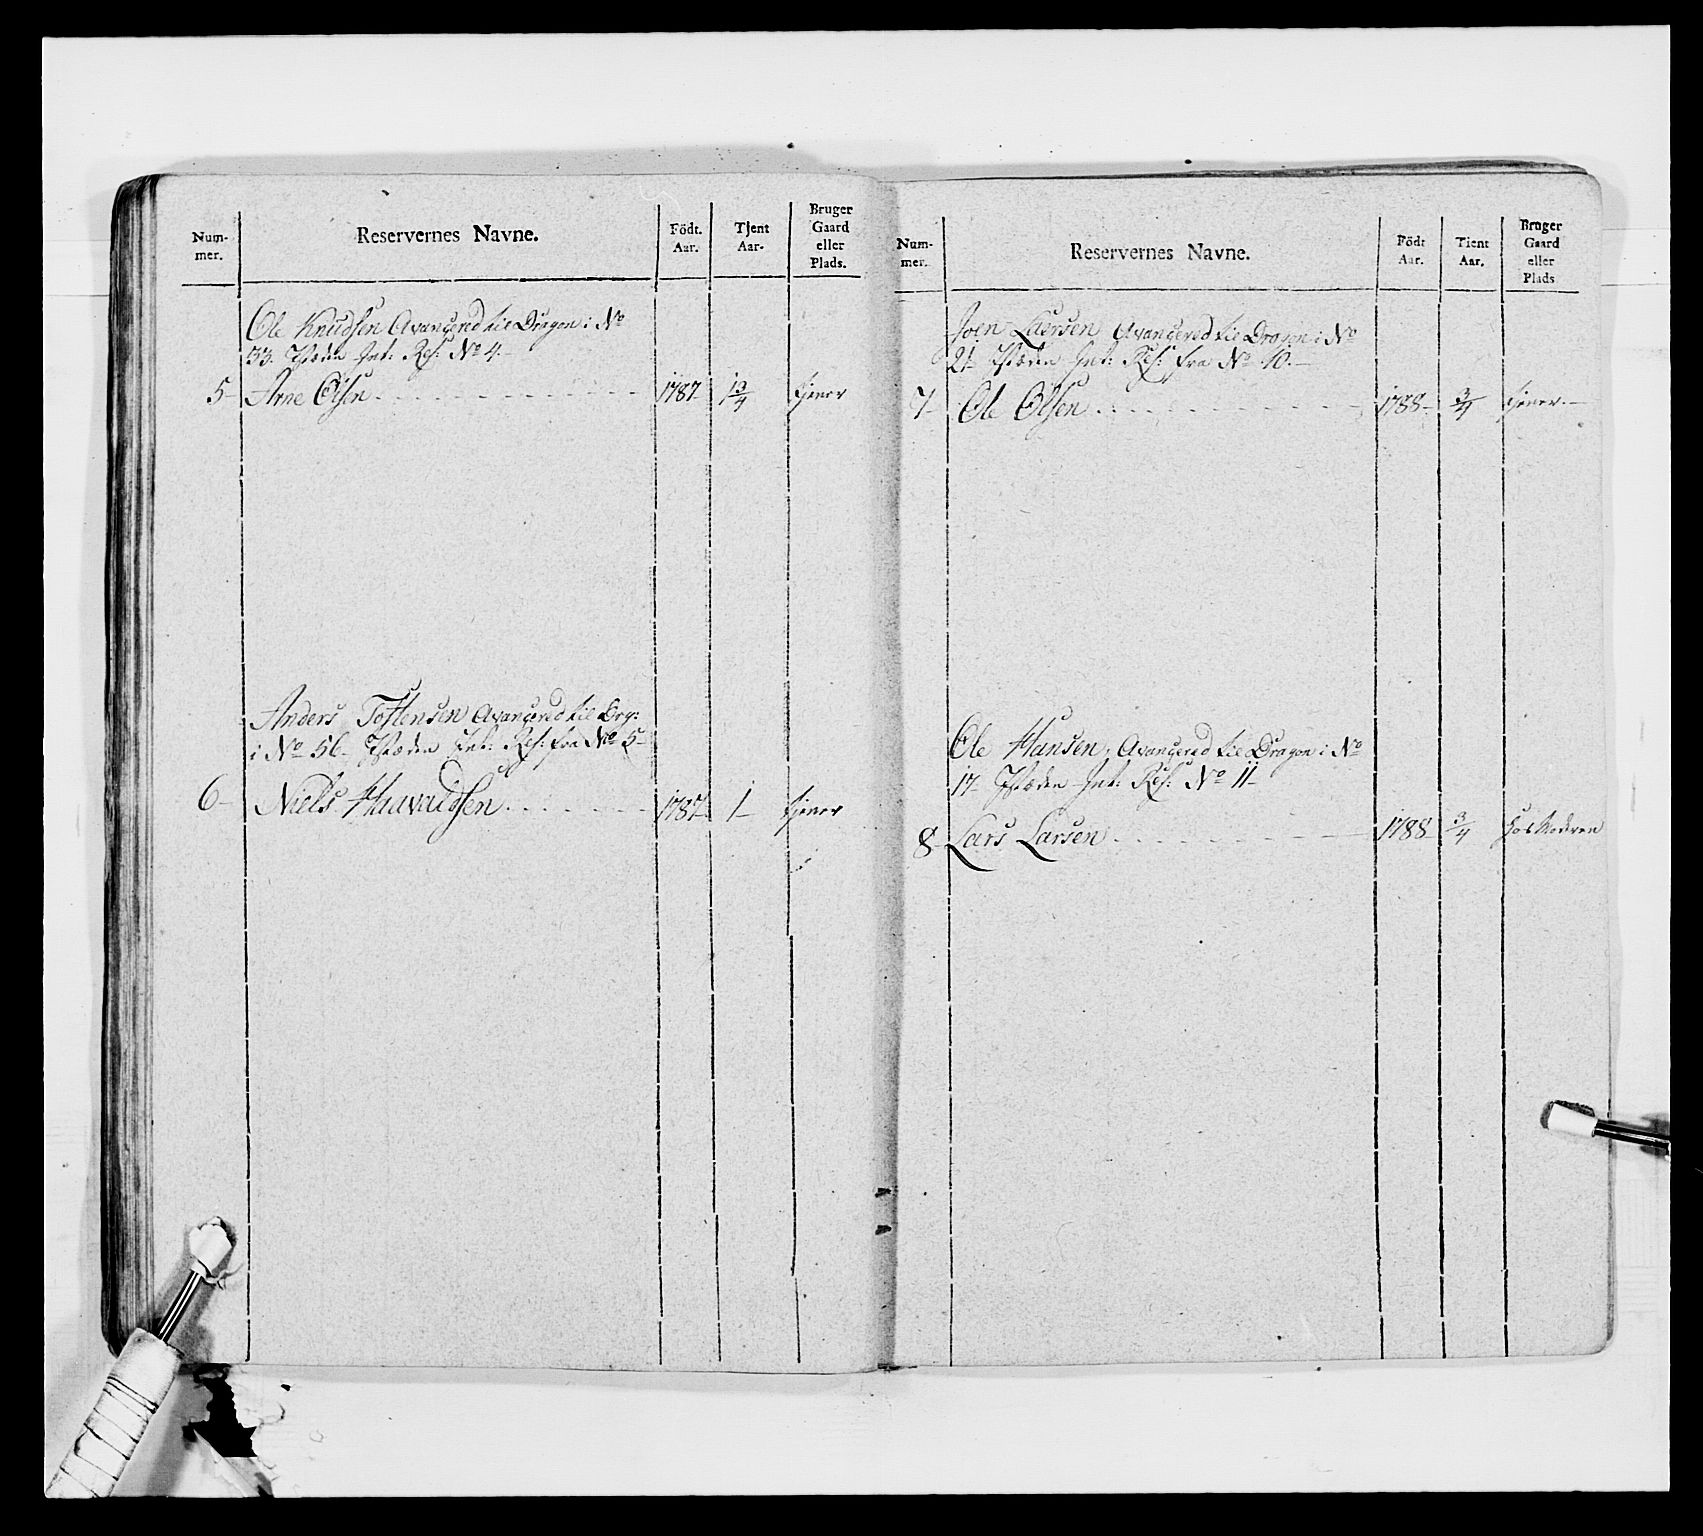 Num-
mer.
Reservernes Navne.
Födt.
Aar.
Tjent
Aar.
Bruger
Gaard
eller
Plads.
Ole Knudsen Avangered til Dragon i No
33. Isteden Int: Res: No 4.-
5- Arne Olsen 1787 1 3/4 tjener
Anders Tostensen Avangered til Drg:
i No 56- Isteden Int: Res: fra No 5-
6- Niels Haavaldsen 1787- 1- tjener
Num-
mer.
Reservernes Navne.
Födt
Aar.
Tient
Aar.
Bruger
Gaard
eller
Plads
Joen Laersen Avangered til Dragon i No
21- Isteden Int: Res: fra No 10.-
7- Ole Olsen 1788- 3/4 tjener.-
Ole Hansen, Avangered til Dragon i No
17- Isteden Int: Res: No 11-
8- Lars Larsen 1788 3/4 hos Moderen